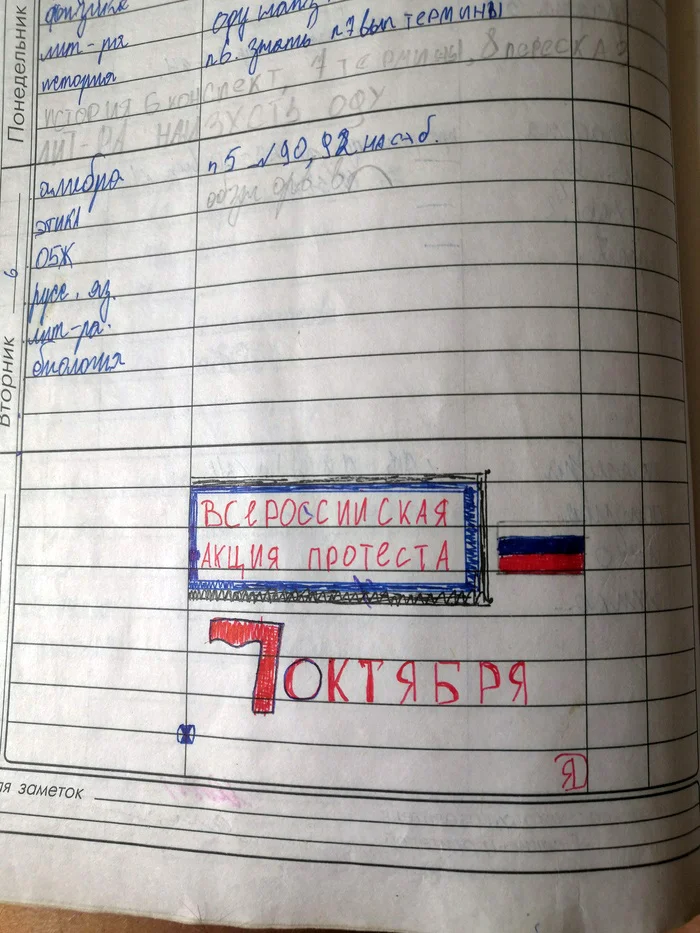 Понедельник
физика
лит-ра
п6. знать п7 вып термины
история
история 6 конспект, 7 термины, 8 пересказ
лит-ра наизусть оду
Вторник 6
алгебра п5 №90, 92 на саб.
этика
ОБЖ
русс. яз.
лит-ра.
биология
ВСеРОССИЙСКАЯ
АКЦИЯ ПРОТЕСТА
7 ОКТЯБРЯ
Я
ля заметок